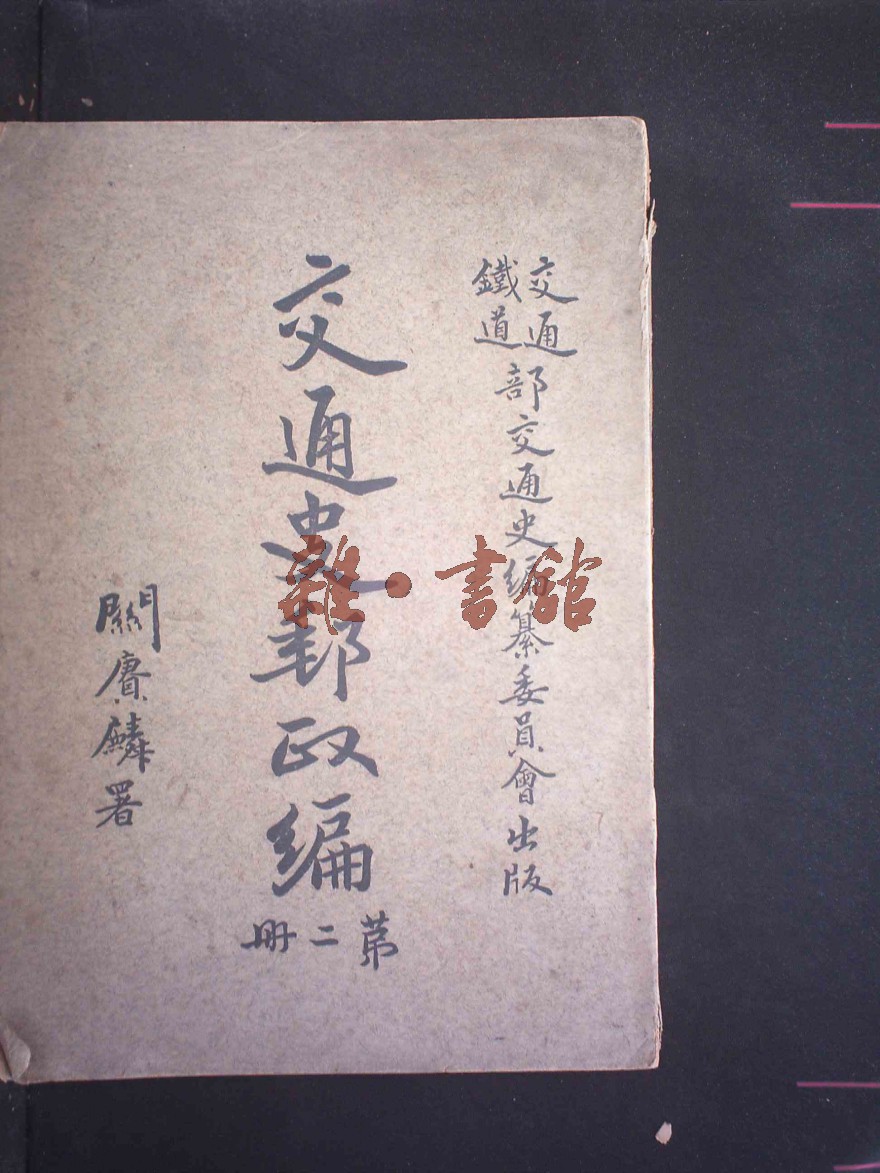 交通
鐵道
部交通史編纂委員會出版
交通史郵政編
第二冊
關賡麟署
雜·書館